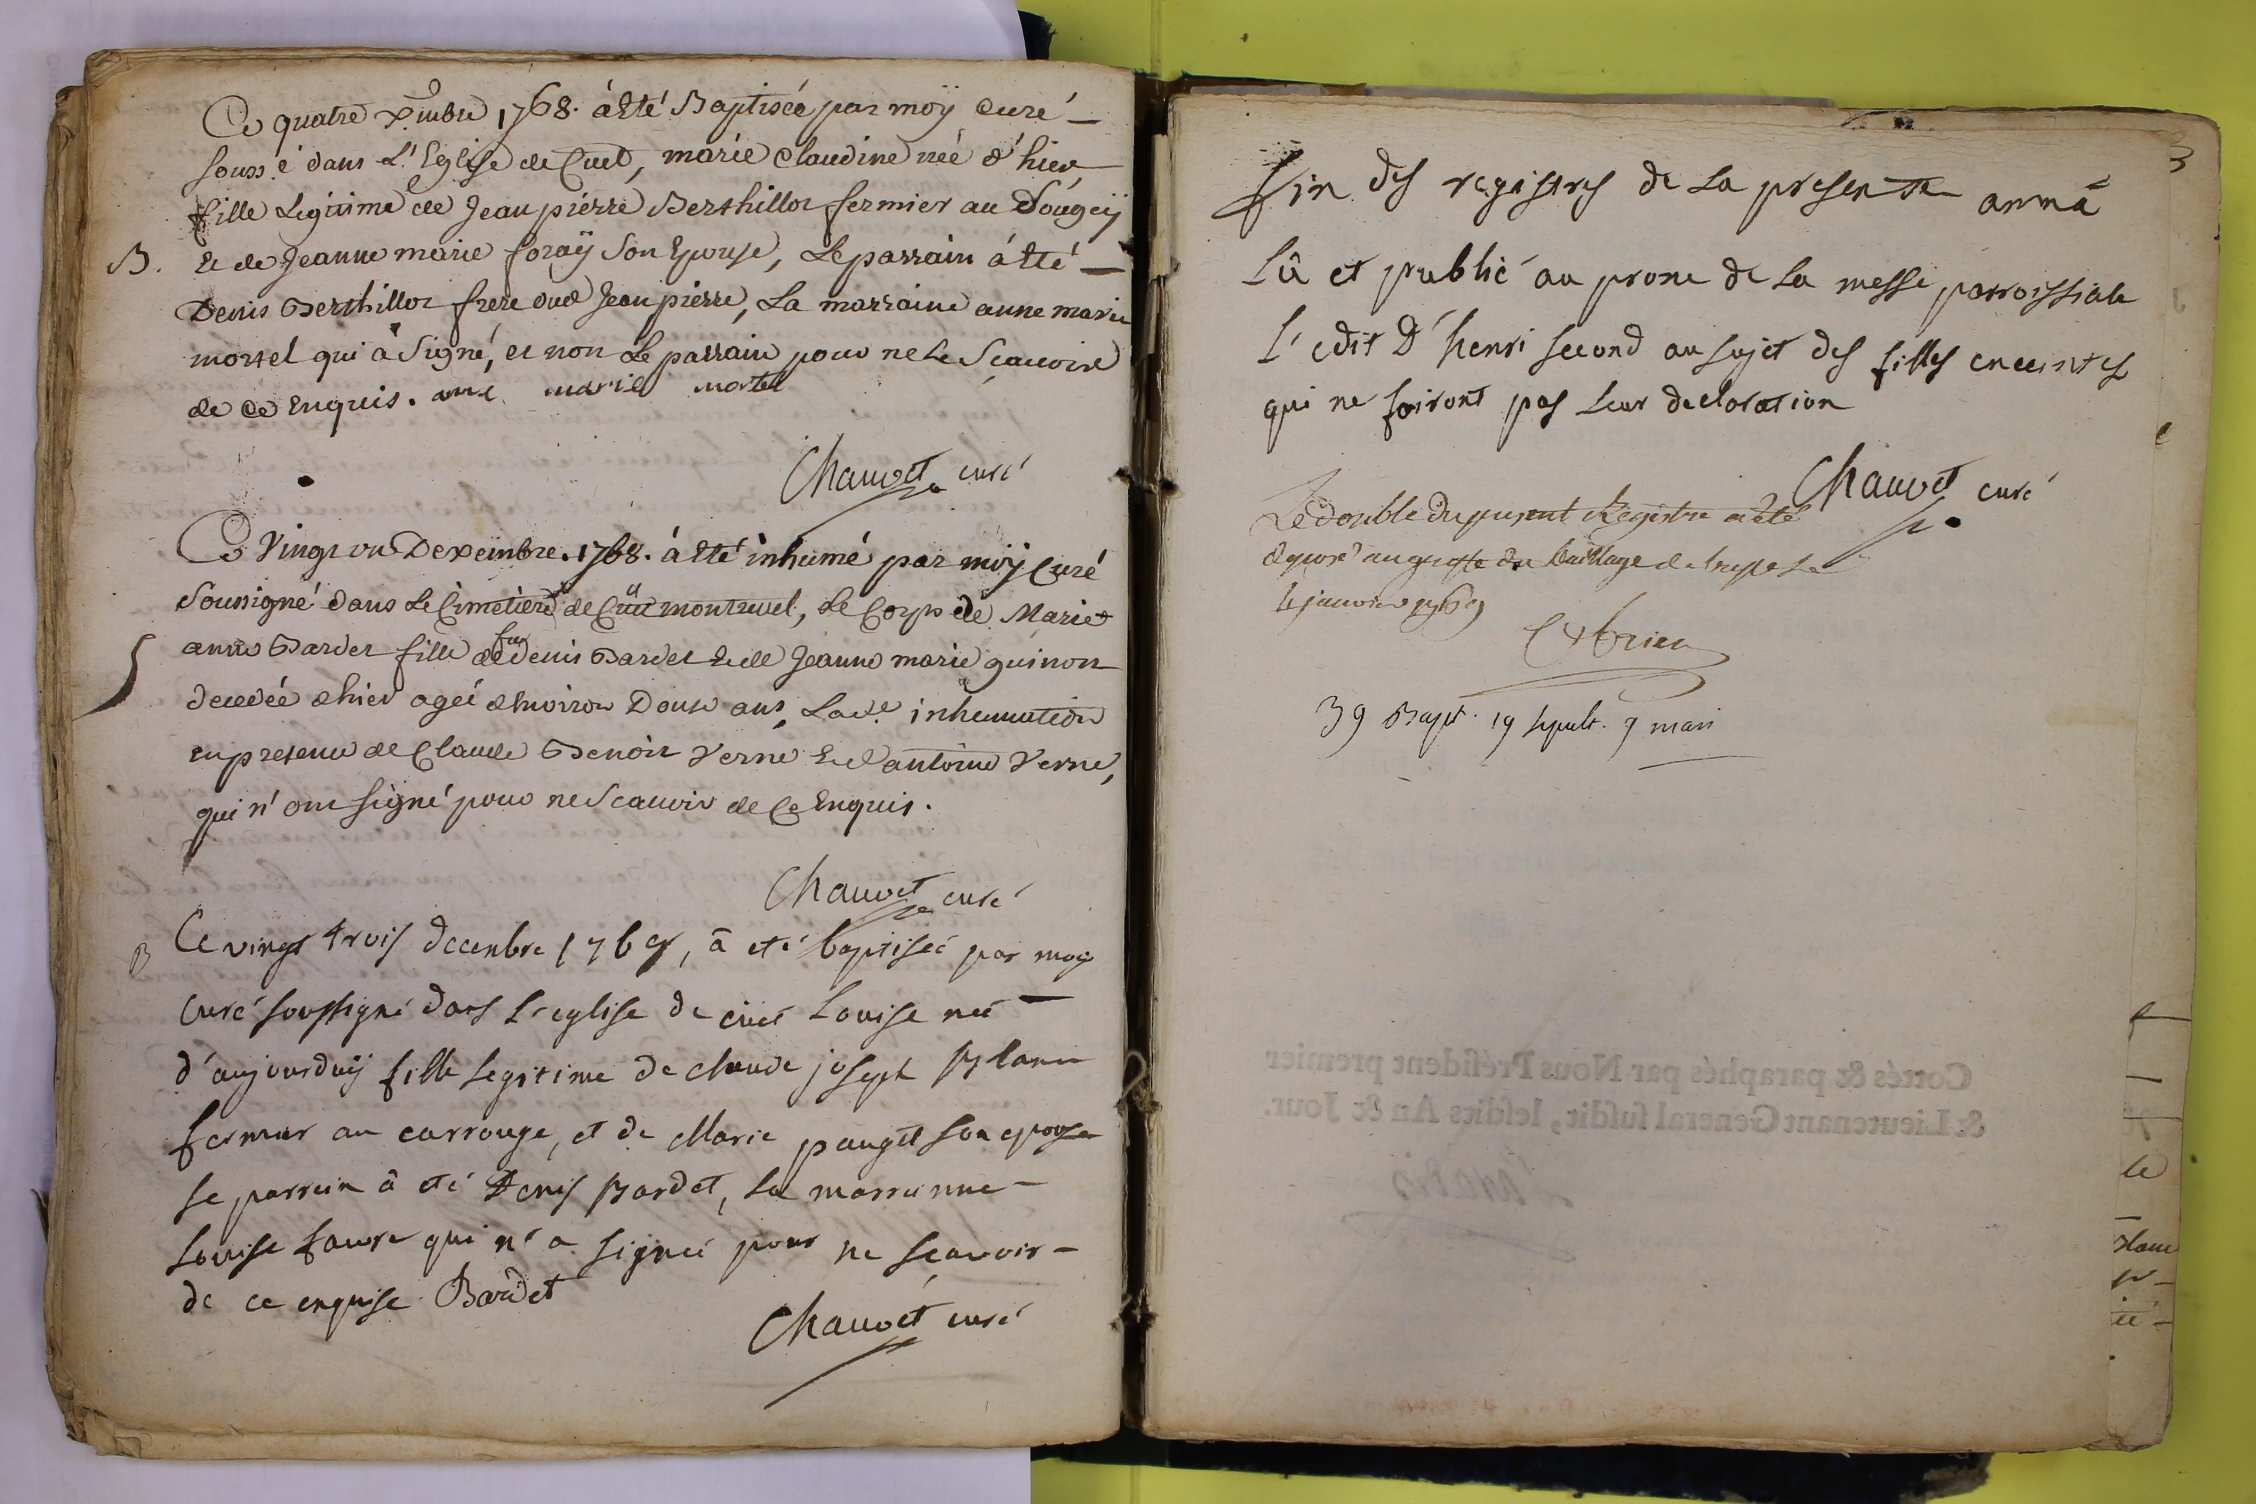 Ce quatre Xmbre 1768. à Eté Baptisée par moÿ Curé
souss.é dans L'Eglise de Cuet, marie Claudine née d'hier
fille Legitime de Jean pierre Berthillot fermier au Dougeÿ
B. Et de Jeanne marie foraÿ Son Epouse, Le parrain à Eté
Denis Berthillot frere dud Jean pierre, La marraine anne marie
mortel qui à Signé, et non Le parrain pour ne Le Scauoir
de ce Enquis. anne marie mortel
Chauvet curé
Ce Vingt un Dexembre. 1768. à Eté inhumé par moÿ Curé
Soussigné dans Le Cimetière de Cuet montrevel, Le Corps de Marie
anne Bardet fille de feu denis Bardet Et de Jeanne marie guinon
decedée d'hier agée denviron Douse ans, Lad.e inhumation
en presence de Claude Benoit Verne Et d'antoine Verne,
qui n'ont signé pour ne Scauoir de Ce Enquis.
Chauvet curé
B Ce vingt trois decenbre 1768, à eté baptisée par moy
Curé soussigné dans L'eglise de cuet Louise née
d'aujourduÿ fille Legitime de claude joseph Blanc
fermier au carrouge, et de Marie pauget son epouse
Le parrein à eté Denis Bardet, La marraine
Louise faure qui n'a signeé pour ne scavoir
de ce enquise Bardet
Chauvet curé
Fin des registres de La presente année
Lû et publié au prone de La messe parroissiale
L'edit D'henri second au sujet des filles enceintes
qui ne fairont pas Leur declaration
Chauvet curé
Le double du present Registre a été
deposé au greffe du bailliage de bresse Le
janvier 1769
39 Bapt. 19 sepult. 7 mari
Cottés & paraphés par Nous Président premier
& Lieutenant General susdit, lesdits An & Jour.